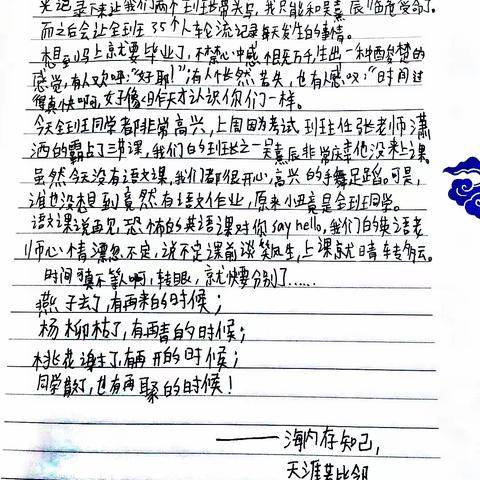 来记录下来让我们两个到班长带头写，我只能和吴熹辰临危受命了。
而之后会让全班35个人轮流记录每天发生的事情。
想到马上就要毕业了，不禁心中感相见万千，生出一种西梦楚的
感觉，有人欢呼："好耶！"有人怅然若失，也有感叹："时间过
得真快啊，好像昨天才认识你们一样。
今天全班同学都非常高兴，上周因为考试班主任张老师潇
洒的霸占了三节课，我们的班长之一吴熹辰非常庆幸他没来上课
虽然今天没有语文课，我们都很开心，高兴的手舞足蹈。可是，
谁也没想到竟然有语文作业，原来小丑竟是全班同学。
语文课说再见，恐怖的英语课对你say hello，我们的英语老
师心情漂忽不定，说不定课前谈笑风生，上课就晴转多云。
时间可真不等人啊，转眼，就快要分别了……
燕子去了，有再来的时候；
杨柳枯了，有再青的时候；
桃花谢了，有再开的时候；
同学散了，也有再聚的时候！
——海内存知己，
天涯若比邻